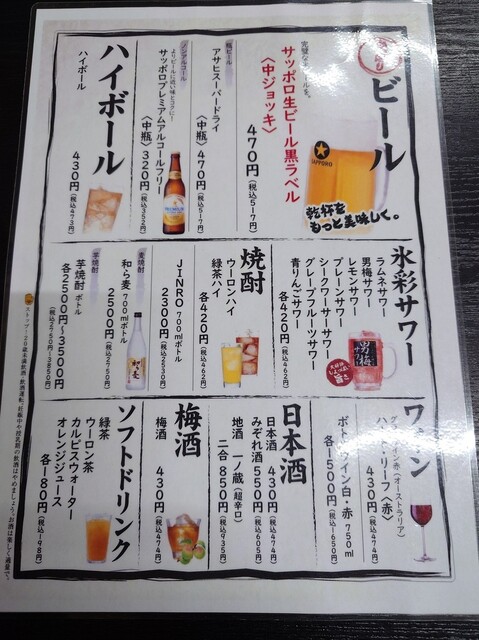 ビール
完璧な
サッポロ生ビール黒ラベル
〈中ジョッキ〉
470円(税込517円)
SAPPORO
乾杯を
もっと美味しく。
瓶ビール
アサヒスーパードライ
〈中瓶〉470円(税込517円)
ノンアルコール
よりビールに近い味とコクに!
サッポロプレミアムアルコールフリー
〈中瓶〉320円(税込352円)
ハイボール
ハイボール
430円(税込473円)
氷彩サワー
ラムネサワー
男梅サワー
レモンサワー
プレーンサワー
シークワーサーサワー
グレープフルーツサワー
青りんごサワー
各420円(税込462円)
男梅
旨さ
焼酎
ウーロンハイ
緑茶ハイ
各420円(税込462円)
JINRO 700mlボトル
2300円(税込2530円)
麦焼酎
和ら麦 700mlボトル
2500円(税込2750円)
芋焼酎
芋焼酎 ボトル
各2500円〜3500円
(税込2750円〜3850円)
ワイン
グラスワイン赤(オーストラリア)
ハート・リーフ〈赤〉
430円(税込474円)
ボトルワイン白・赤 750ml
各1500円(税込1650円)
日本酒
日本酒 430円(税込474円)
みぞれ酒 550円(税込605円)
地酒 一ノ蔵(超辛口)
二合 850円(税込935円)
梅酒
梅酒 430円(税込474円)
ソフトドリンク
緑茶
ウーロン茶
カルピスウォーター
オレンジジュース
各180円(税込198円)
ストップ!20歳未満飲酒・飲酒運転。妊娠中や授乳期の飲酒はやめましょう。お酒は楽しく適量で。